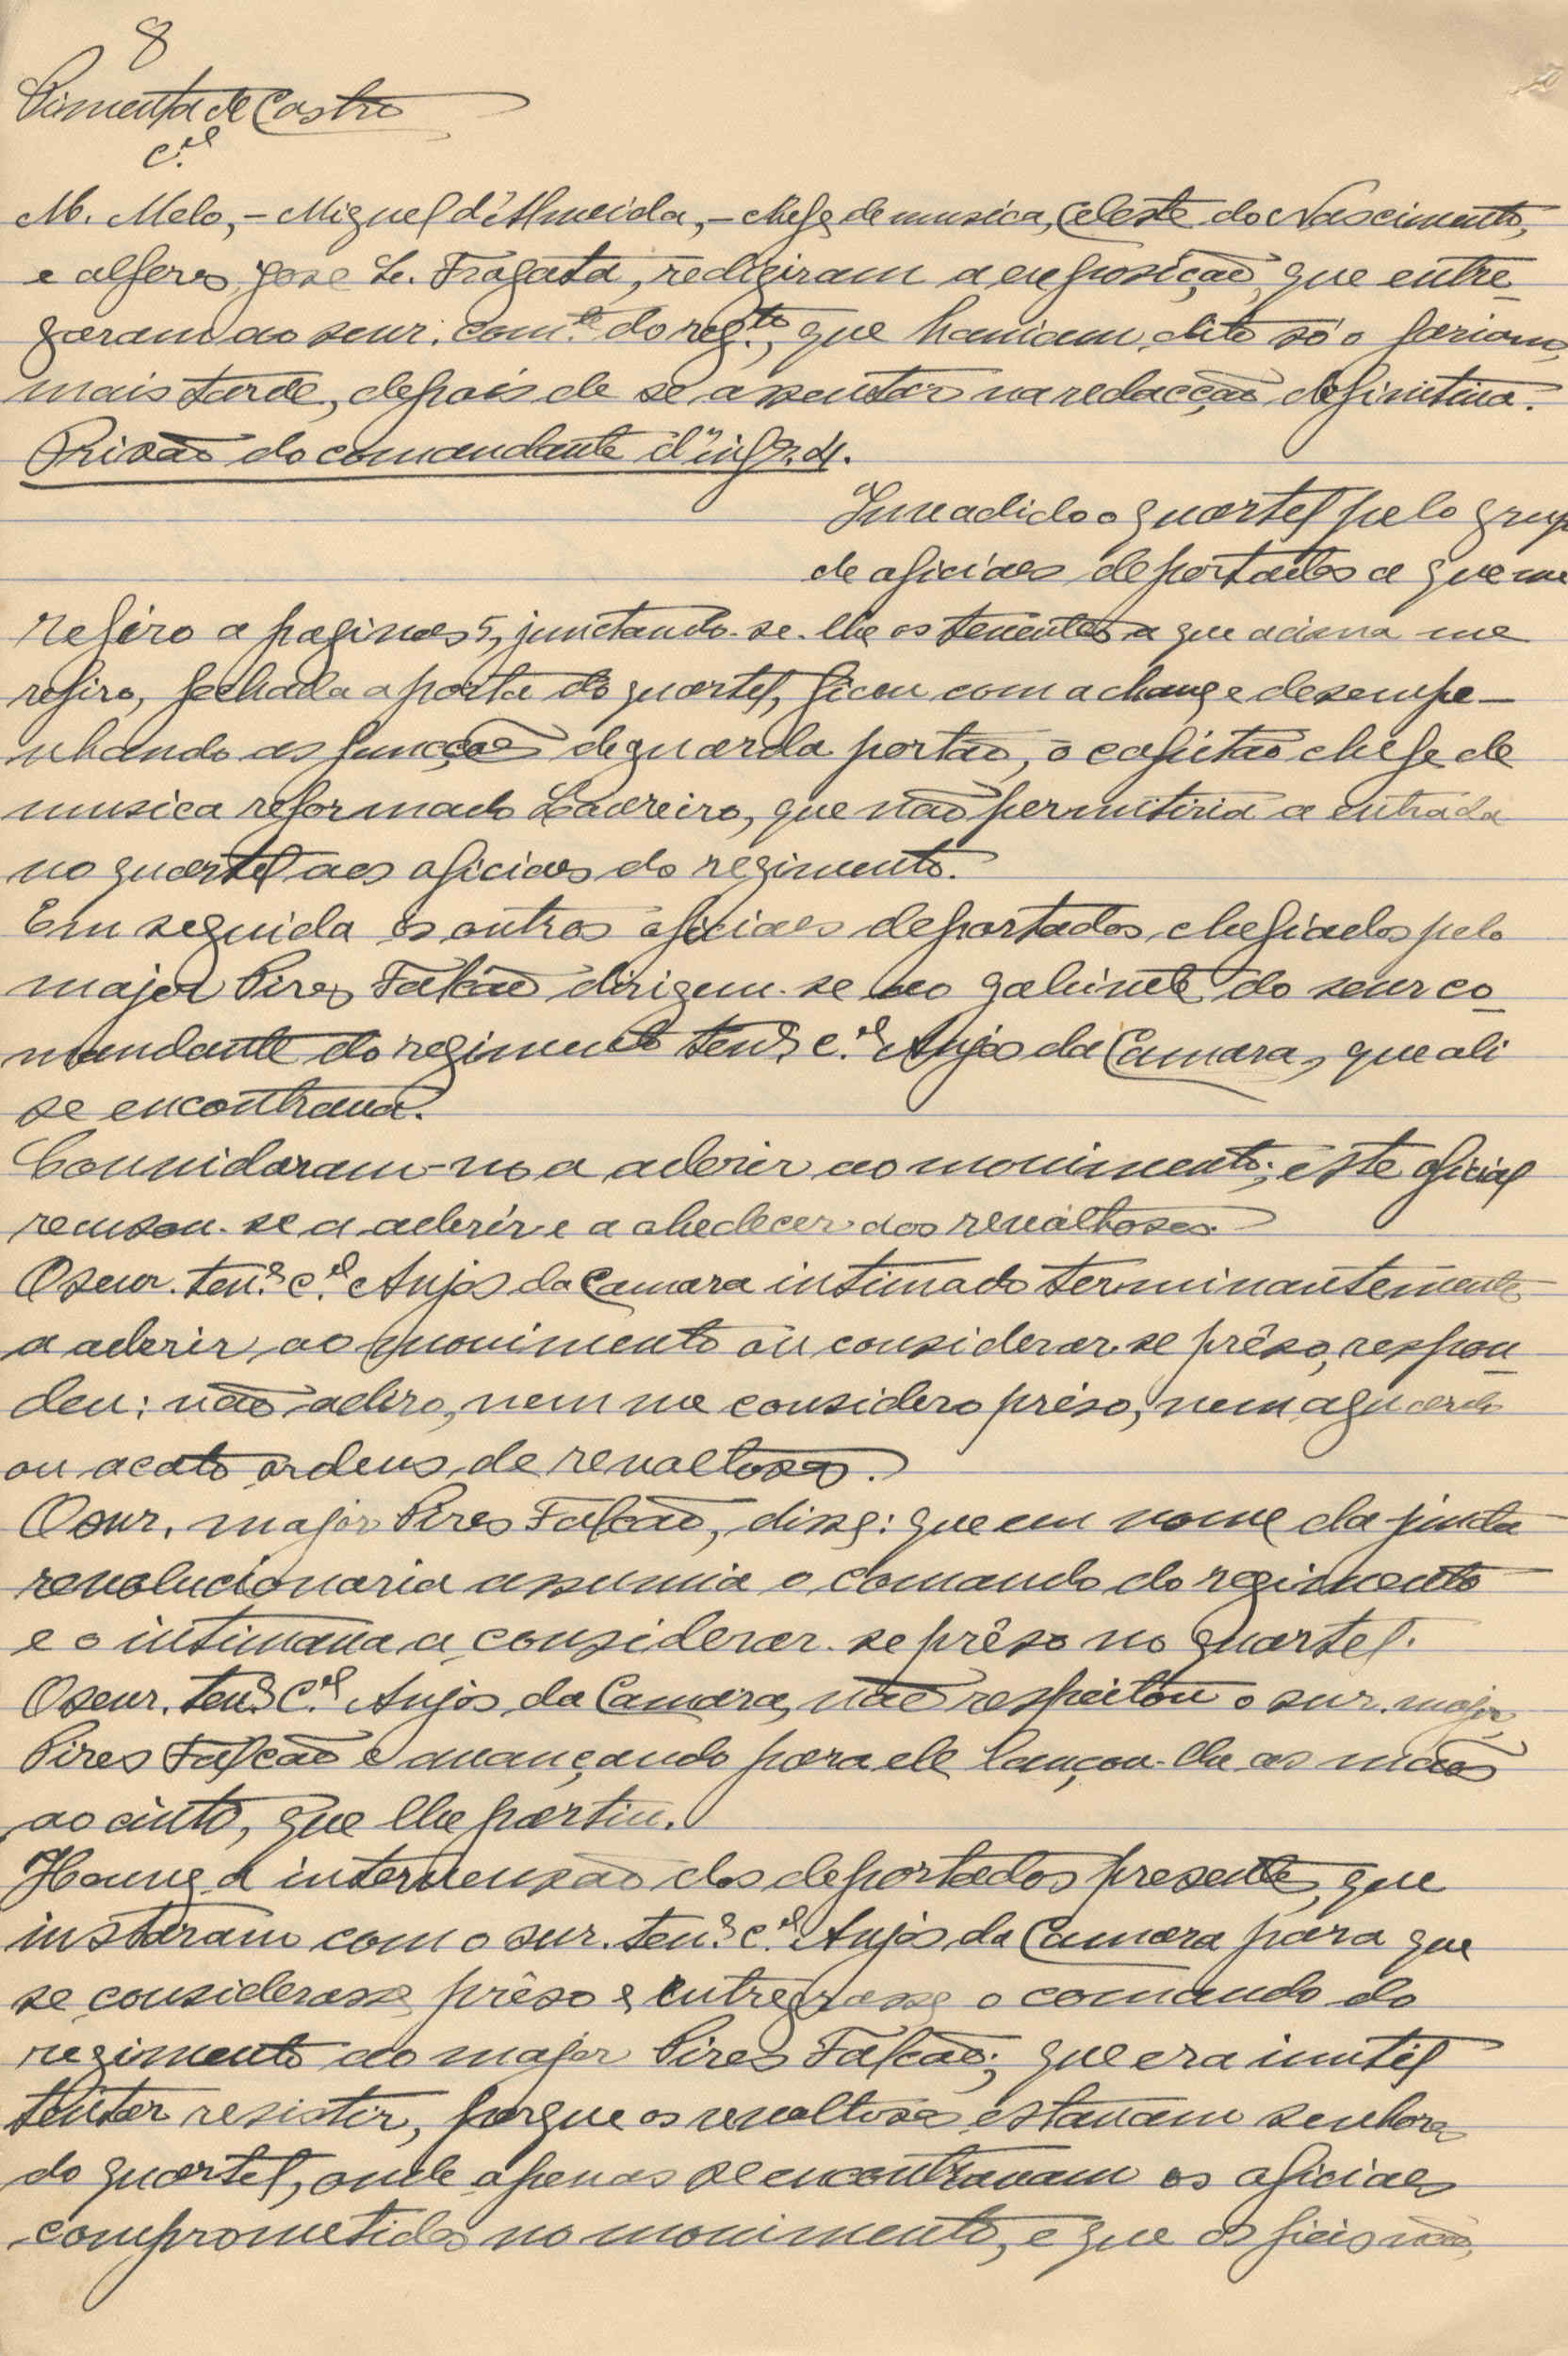 8
Pimenta de Castro
C.el
M. Melo, - Miguel d'Almeida, - chefe de musica, Celeste do Nascimento,
e alferes José L. Fragata, redigiram a exposição, que entre-
garam ao senr. com.te do reg.to, que haviam dito só o fariam
mais tarde, depois de se assentar na redacção definitiva.
Prisão do comandante d'inf.ª 4.
Invadido o quartel pelo grupo
de oficiaes deportados a que me
refiro a paginas 5, junctando-se-lhe os tenentes a que acima me
refiro, fechada a porta do quartel, ficou com a chave e desempe-
nhando as funcções de guarda portão, o capitão chefe de
musica reformado Loureiro, que não permitiria a entrada
no quartel aos oficiaes do regimento.
Em seguida os outros oficiaes deportados, chefiados pelo
major Pires Falcão dirigem-se ao gabinete do senr co-
mandante do regimento ten.e c.el Anjos da Camara, que ali
se encontrava.
Convidaram-no a aderir ao movimento; éste oficial
recusou-se a aderir e a obedecer aos revoltosos.
O senr. ten.e c.el Anjos da Camara intimado terminantemente
a aderir ao movimento ou considerar-se prêso, respon-
deu: não adiro, nem me considero prêso, nem aguardo
ou acato ordens de revoltosos.
O snr. major Pires Falcão, disse: que em nome da junta
revolucionaria assumia o comando do regimento
e o intimava a considerar-se prêso no quartel.
O senr. ten.e C.el Anjos da Camara, não respeitou o snr. major
Pires Falcão e avançando para ele lançou-lhe as mãos
ao cinto, que lhe partiu.
Houve a intervensão dos deportados presentes, que
instaram com o snr. ten.e c.el Anjos da Camara para que
se considerasse prêso e entregasse o comando do
regimento ao major Pires Falcão; que era inutil
tentar resistir, porque os revoltosos estavam senhores
do quartel, onde apenas se encontravam os oficiaes
comprometidos no movimento, e que os fieis não,